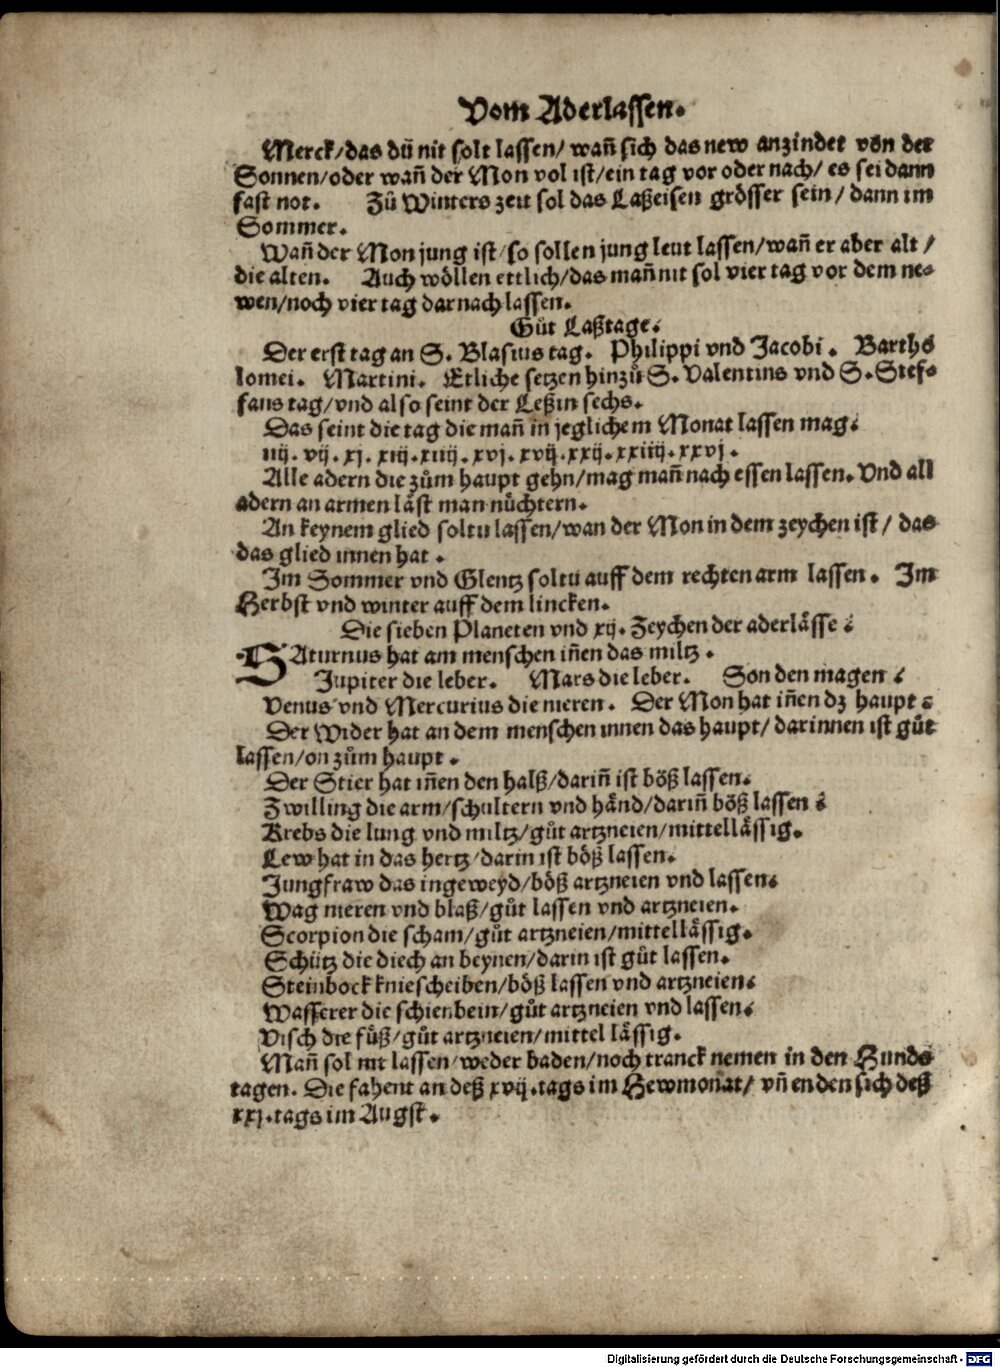 Vom Aderlassen.
Merck/das dů nit solt lassen/ wañ sich das new anzindet von der
Sonnen/oder wañ der Mon vol ist/ein tag vor oder nach/ es sei dann
fast not. Zů Winters zeit sol das Laßeisen grösser sein/ dann im
Sommer.
Wañ der Mon jung ist/so sollen jung leut lassen/wañ er aber alt/
die alten. Auch wöllen ettlich/das mañ nit sol vier tag vor dem ne-
wen/noch vier tag darnach lassen.
Gůt Laßtage.
Der erst tag an S. Blasius tag. Philippi vnd Jacobi. Bartho
lomei. Martini. Etliche setzen hinzů S. Valentins vnd S. Stef-
fans tag/vnd also seint der Leßin sechs.
Das seint die tag die mañ in jeglichem Monat lassen mag.
iiij. vij. xj. xiij. xiiij. xvj. xvij. xxij. xxiiij. xxvj.
Alle adern die zům haupt gehn/mag mañ nach essen lassen. Vnd all
adern an armen läst man nüchtern.
An keynem glied soltu lassen/wan der Mon in dem zeychen ist/ das
das glied innen hat.
Im Sommer vnd Glentz soltu auff dem rechten arm lassen. Im
Herbst vnd winter auff dem lincken.
Die sieben Planeten vnd xij. Zeychen der aderlässe.
SAturnus hat am menschen iñen das miltz.
Jupiter die leber. Mars die leber. Son den magen.
Venus vnd Mercurius die nieren. Der Mon hat iñen dz haupt.
Der Wider hat an dem menschen innen das haupt/ darinnen ist gůt
lassen/on zům haupt.
Der Stier hat iñen den halß/dariñ ist böß lassen.
Zwilling die arm/schultern vnd händ/dariñ böß lassen.
Krebs die lung vnd miltz/gůt artzneien/mittellässig.
Lew hat in das hertz/darin ist böß lassen.
Jungfraw das ingeweyd/böß artzneien vnd lassen.
Wag nieren vnd blaß/gůt lassen vnd artzneien.
Scorpion die scham/gůt artzneien/mittellässig.
Schütz die diech an beynen/darin ist gůt lassen.
Steinbock kniescheiben/böß lassen vnd artzneien.
Wasserer die schienbein/gůt artzneien vnd lassen.
Visch die füß/gůt artzneien/mittel lässig.
Mañ sol nit lassen/weder baden/noch tranck nemen in den Hunds
tagen. Die fahent an deß xvij. tags im Hewmonat/ vñ enden sich deß
xxj. tags im Augst.
Digitalisierung gefördert durch die Deutsche Forschungsgemeinschaft - DFG